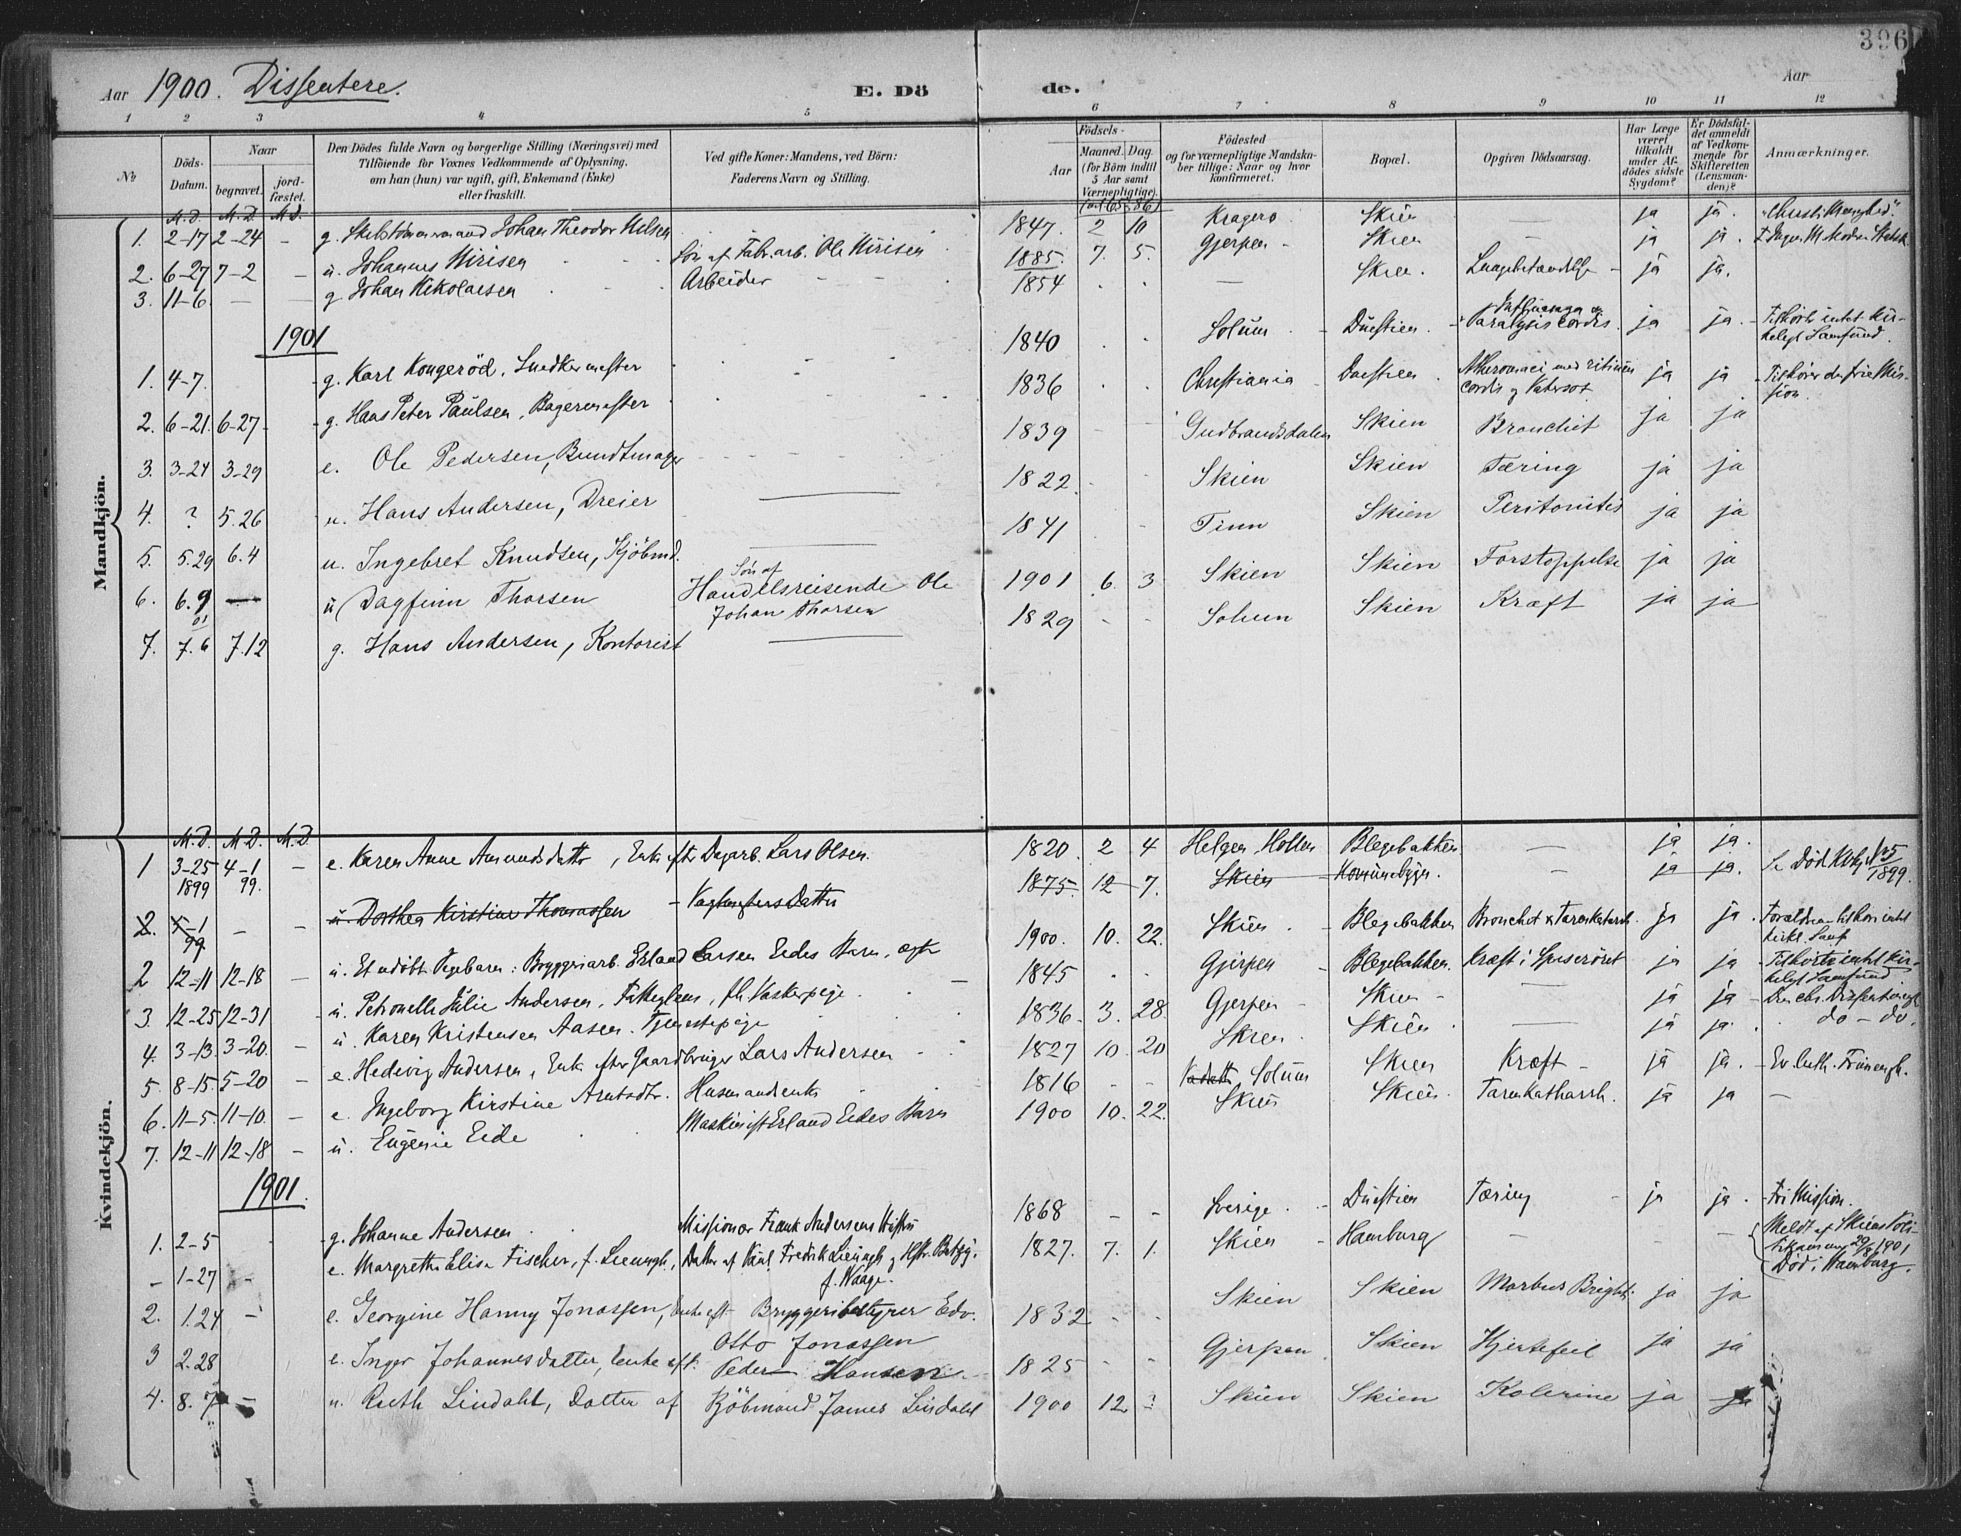 396
Aar 1900. Dissentere. E. Dö de. Aar
1 2 3 4 5 6 7 8 9 10 11 12
No
Döds-Datum.
Naar
begravet.
jord-fæstet.
Den Dödes fulde Navn og borgerlige Stilling (Næringsvei) med
Tilföiende for Voxnes Vedkommende af Oplysning,
om han (hun) var ugift, gift, Enkemand (Enke)
eller fraskilt.
Ved gifte Koner: Mandens, ved Börn:
Faderens Navn og Stilling.
Födsels-
Aar
Maaned. Dag.
(for Börn indtil
5 Aar samt
Værnepligtige).
Födested
og for værnepligtige Mandska-
ber tillige: Naar og hvor
konfirmeret.
Bopæl.
Opgiven Dödsaarsag.
Har Læge
været
tilkaldt
under Af-
dödes sidste
Sygdom?
Er Dödsfal-
det anmeldt
af Vedkom-
mende for
Skifteretten
(Lensman-
den)?
Anmærkninger.
Mandkjön.
M.D. M.D. M.D.
1. 2-17 2-24 - g. Johan Theodor Nilsen 1847. 2 10 Kragerø Skien — ja ja.
2. 6-27 7-2 - u. Johannes Nirisen Søn af Fabr.arb. Ole Nirisen 1885. 7. 5. Gjerpen Skien — ja ja.
3. 11-6 — g. Johan Nikolaisen Arbeider 1854 — Skien. ja ja.
1901
1. 4-7. g. Karl Kongerød, Snedkermester 1840 Solum Duestien Influenza og Paralysis cordis. ja ja. Tilhörte intet kir-
keligt Samfund.
2. 6-21. 6-27 g. Hans Peter Paulsen, Bagermester 1836 Christiania Duestien cordis og Vatersot. ja ja Tilhörer den frie Mis-
sion.
3. 3-24 3-29 e. Ole Pedersen, Bundtmager 1839 Gudbrandsdalen Skien Bronchit ja ja
4. ? 5.26 u. Hans Andersen, Dreier 1822 Skien Skien Tæring ja ja
5. 5.29 6.4 u. Ingebret Knudsen, Kjöbmd. 1841 Tinn Skien Peritonitis ja ja
6. 6.9 — u. Dagfinn Thorsen Søn af
Handelsreisende Ole
Johan Thorsen 1901 6. 3 Skien Skien Forstoppelse ja ja
7. 7.6 7.12 g. Hans Andersen, Kontorist 1829 Solum Skien Kræft ja ja
Kvindekjön.
M.D. M.D. M.D.
1 3-25 4-1 - e. Karen Anne Amundsdatter, Enke efter Dagarb. Lars Olsen. 1820. 2 4 Helgen Hollen Blegebakken — ja ja.
1899 99.
2. 5-1 — u. Dorthea Kirstine Thomassen - Vagtmesters Datter 1875. 12 7. Skien — ja ja.
99
1899.
2 12-11 12-18 - u. Et udöbt Pigebarn: Bryggeriarb. Erland Larsen Eides Barn, ægte 1900. 10. 22. Skien Blegebakken Bronchit & Tarmkatarrh. ja ja. Forældrene tilhöri intet
kirkl. Samf
3. 12-25 12-31 u. Petronelle Julie Andersen, Fattiglem, fh. Vaskerpige. 1845 Gjerpen Blegebakken. Kræft i Spiserøret ja ja Tilhörte intet kir-
keligt Samfund
4. 3-13. 3-20. - u. Karen Kristensen Aasen. Tjenestepige 1836 3. 28. Gjerpen Skien — ja ja
5. 8-15 5-20 - e. Hedevig Andersen, Enke efter Gaardbruger Lars Andersen 1827 10. 20 Skien. Skien — ja ja. do - do.
6. 11-5. 11-10. - e. Ingeborg Kirstine Husmandsenke 1816 - - Solum Skien Kræft ja ja. Ev. luth. Frimenigh.
7. 12-11 12-18 - u. Eugenie Eide Maskinist Erland Eides Barn 1900 10. 22. Skien Skien. Tarmkatharrh. ja ja —
1901.
1. 2-5 g. Johanne Andersen Missionær Frank Andersens Hustru 1868 - - Sverige. Duestien Tæring ja ja. Fri Mission.
- 1-27 - e. Margrethe Elise Fischer, f. Datter af 1827. 7. 1. Skien Hamburg - - - Meldt af Skiens Poli-
29/8 1901
Död i Hamburg.
f. Waage.
2. 1.24 - e. Georgine Hanny Jonassen, Enke eft Bryggeribestyrer Edv.
Otto Jonassen 1832 - - Skien Skien Morbus Brightii ja ja
3 2.28 e. Inger Johannesdatter, Enke eft. Peder Hansen 1825 - - Gjerpen Skien Hjertefeil ja ja
4. 8.7 - u. Ruth Lindahl, Datter af Kjöbmand James Lindahl 1900 12 ? Skien Skien Kolerine ja ja